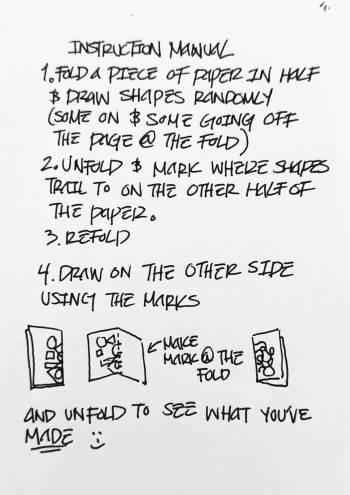 INSTRUCTION MANUAL
1. FOLD A PIECE OF PAPER IN HALF
& DRAW SHAPES RANDOMLY
(SOME ON & SOME GOING OFF
THE PAGE @ THE FOLD)
2. UNFOLD & MARK WHERE SHAPES
TRAIL TO ON THE OTHER HALF OF
THE PAPER.
3. REFOLD
4. DRAW ON THE OTHER SIDE
USING THE MARKS
MAKE
MARK @ THE
FOLD
AND UNFOLD TO SEE WHAT YOU'VE
MADE :)